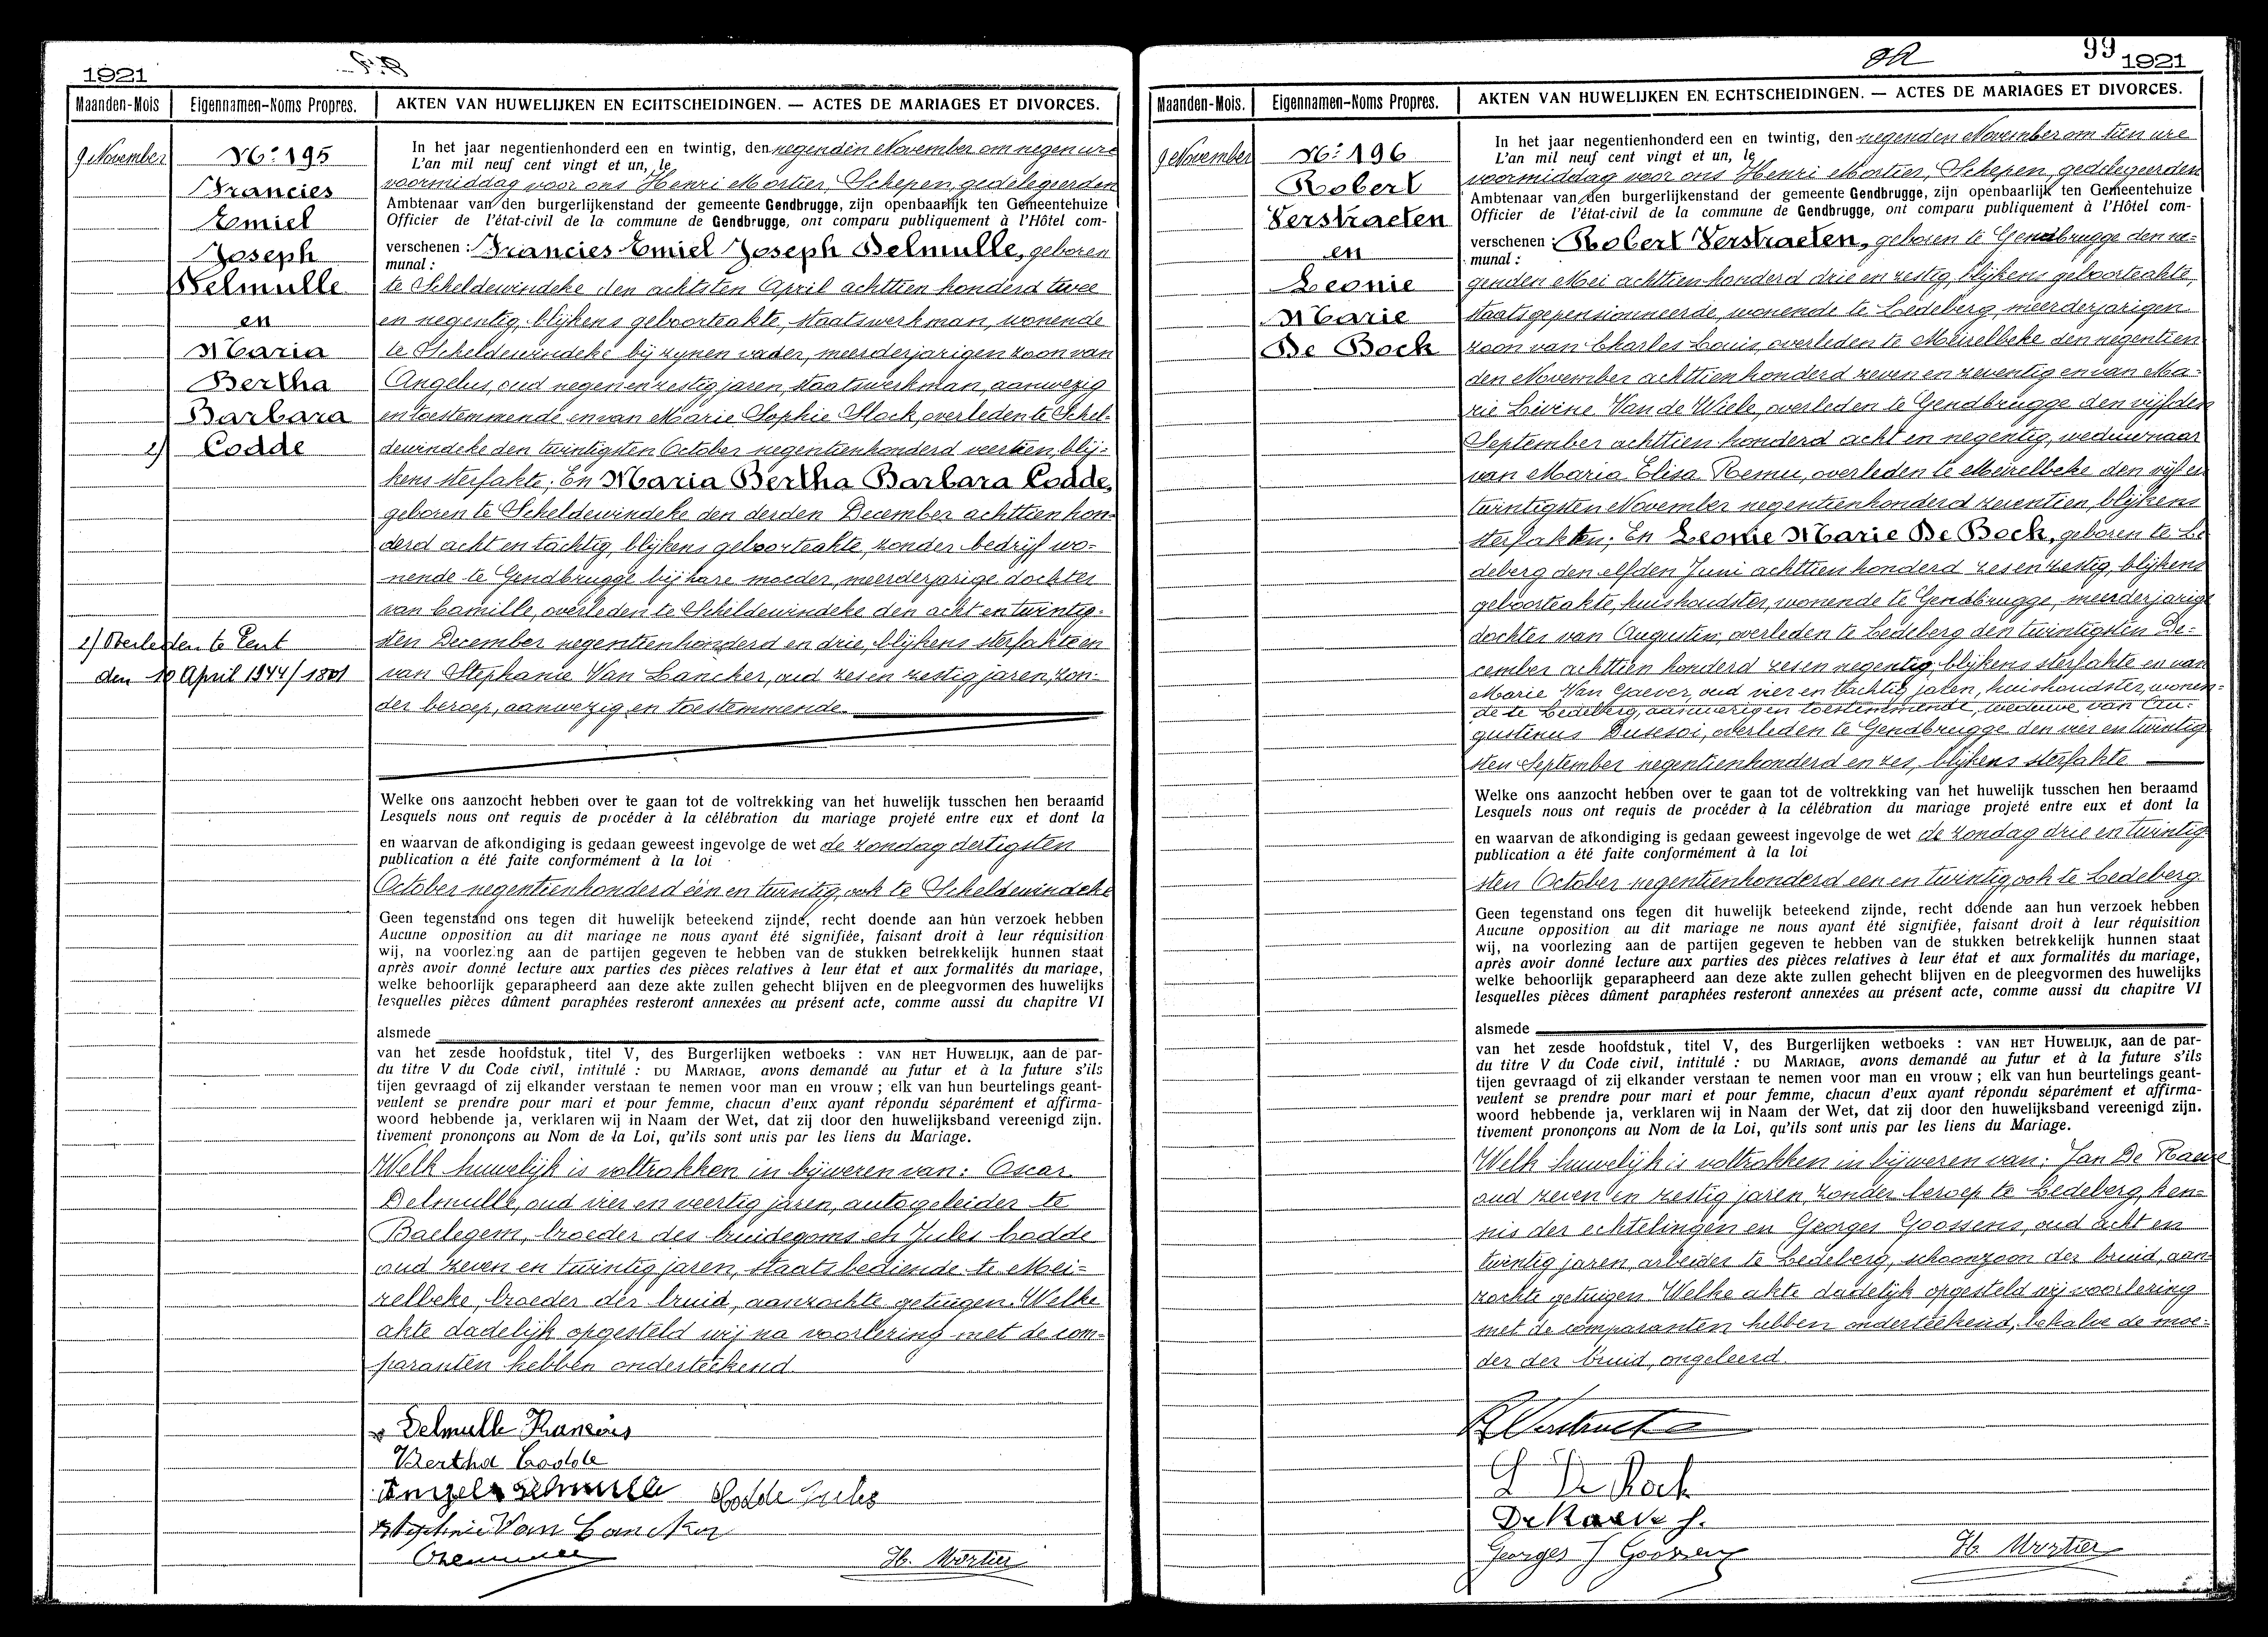 1921
Maanden-Mois
Eigennamen-Noms Propres.
AKTEN VAN HUWELIJKEN EN ECHTSCHEIDINGEN. — ACTES DE MARIAGES ET DIVORCES.
9 November
No: 195
Francies
Emiel
Joseph
Delmulle
en
Maria
Bertha
Barbara
2) Codde
2) Overleden te Gent
den 10 April 1944/1801
In het jaar negentienhonderd een en twintig, den negenden November om negen ure
L'an mil neuf cent vingt et un, le
voormiddag voor ons Henri Mortier, Schepen, gedelegeerden
Ambtenaar van den burgerlijkenstand der gemeente Gendbrugge, zijn openbaarlijk ten Gemeentehuize
Officier de l'état-civil de la commune de Gendbrugge, ont comparu publiquement à l'Hôtel com-
verschenen : Francies Emiel Joseph Delmulle, geboren
munal :
te Scheldewindeke den achtsten April achttien honderd twee
en negentig, blijkens geboorteakte, staatswerkman, wonende
te Scheldewindeke bij zynen vader, meerderjarigen zoon van
Angelus, oud negen en zestig jaren, staatswerkman, aanwezig
en toestemmende en van Marie Sophie Slock, overleden te Schel-
dewindeke den twintigsten October negentienhonderd veertien, blij-
kens sterfakte; En Maria Bertha Barbara Codde,
geboren te Scheldewindeke den derden December achttien hon-
derd acht en tachtig, blijkens geboorteakte, zonder bedrijf wo-
nende te Gendbrugge bij hare moeder, meerderjarige dochter
van Camille, overleden te Scheldewindeke den acht en twintig-
sten December negentienhonderd en drie, blijkens sterfakte en
van Stephanie Van Lancker, oud zes en zestig jaren, zon-
der beroep, aanwezig en toestemmende.
Welke ons aanzocht hebben over te gaan tot de voltrekking van het huwelijk tusschen hen beraamd
Lesquels nous ont requis de procéder à la célébration du mariage projeté entre eux et dont la
en waarvan de afkondiging is gedaan geweest ingevolge de wet de zondag dertigsten
publication a été faite conformément à la loi
October negentienhonderd één en twintig, ook te Scheldewindeke
Geen tegenstand ons tegen dit huwelijk beteekend zijnde, recht doende aan hun verzoek hebben
Aucune opposition au dit mariage ne nous ayant été signifiée, faisant droit à leur réquisition
wij, na voorlezing aan de partijen gegeven te hebben van de stukken betrekkelijk hunnen staat
après avoir donné lecture aux parties des pièces relatives à leur état et aux formalités du mariage,
welke behoorlijk geparapheerd aan deze akte zullen gehecht blijven en de pleegvormen des huwelijks
lesquelles pièces dûment paraphées resteront annexées au présent acte, comme aussi du chapitre VI
alsmede
van het zesde hoofdstuk, titel V, des Burgerlijken wetboeks : VAN HET HUWELIJK, aan de par-
du titre V du Code civil, intitulé : DU MARIAGE, avons demandé au futur et à la future s'ils
tijen gevraagd of zij elkander verstaan te nemen voor man en vrouw ; elk van hun beurtelings geant-
veulent se prendre pour mari et pour femme, chacun d'eux ayant répondu séparément et affirma-
woord hebbende ja, verklaren wij in Naam der Wet, dat zij door den huwelijksband vereenigd zijn.
tivement prononçons au Nom de la Loi, qu'ils sont unis par les liens du Mariage.
Welk huwelijk is voltrokken in bijwezen van: Oscar
Delmulle, oud vier en veertig jaren, autogeleider te
Baelegem, broeder des bruidegoms en Jules Codde
oud zeven en twintig jaren, staatsbediende te Mei-
relbeke, broeder der bruid, aanzochte getuigen. Welke
akte dadelijk opgesteld wij na voorlezing met de com-
paranten hebben onderteekend
Delmulle François
Bertha Codde
Angelus Delmulle Codde Jules
Stephanie Van Lancker
H. Mortier
99
1921
Maanden-Mois.
Eigennamen-Noms Propres.
AKTEN VAN HUWELIJKEN EN ECHTSCHEIDINGEN. — ACTES DE MARIAGES ET DIVORCES.
9 November
No: 196
Robert
Verstraeten
en
Leonie
Marie
De Bock
In het jaar negentienhonderd een en twintig, den negenden November om tien ure
L'an mil neuf cent vingt et un, le
voormiddag voor ons Henri Mortier, Schepen, gedelegeerden
Ambtenaar van den burgerlijkenstand der gemeente Gendbrugge, zijn openbaarlijk ten Gemeentehuize
Officier de l'état-civil de la commune de Gendbrugge, ont comparu publiquement à l'Hôtel com-
verschenen : Robert Verstraeten, geboren te Gendbrugge den ne-
munal :
genden Mei achttienhonderd drie en zestig, blijkens geboorteakte,
staatsgepensionneerde, wonende te Ledeberg, meerderjarigen
zoon van Charles Louis, overleden te Meirelbeke den negentien
den November achttienhonderd zeven en zeventig en van Ma-
rie Livine Van de Wiele, overleden te Gendbrugge den vijfden
September achttien honderd acht en negentig, weduwnaar
van Maria Elisa Remu, overleden te Meirelbeke den vijf en
twintigsten November negentienhonderd zeventien, blijkens
sterfakten; En Leonie Marie De Bock, geboren te Le
deberg den elfden Juni achttienhonderd zes en zestig, blijkens
geboorteakte, huishoudster, wonende te Gendbrugge, meerderjarige
dochter van Augustin, overleden te Ledeberg den twintigsten De-
cember achttien honderd zes en negentig, blijkens sterfakte en van
Marie Van Gaever, oud vier en tachtig jaren, huishoudster, wonen-
de te Ledeberg, aanwezig en toestemmende, weduwe van Au-
gustinus Dusesoi, overleden te Gendbrugge den vier en twintig
sten September negentienhonderd en zes, blijkens sterfakte
Welke ons aanzocht hebben over te gaan tot de voltrekking van het huwelijk tusschen hen beraamd
Lesquels nous ont requis de procéder à la célébration du mariage projeté entre eux et dont la
en waarvan de afkondiging is gedaan geweest ingevolge de wet de zondag drie en twintig
publication a été faite conformément à la loi
sten October negentienhonderd een en twintig, ook te Ledeberg
Geen tegenstand ons tegen dit huwelijk beteekend zijnde, recht doende aan hun verzoek hebben
Aucune opposition au dit mariage ne nous ayant été signifiée, faisant droit à leur réquisition
wij, na voorlezing aan de partijen gegeven te hebben van de stukken betrekkelijk hunnen staat
après avoir donné lecture aux parties des pièces relatives à leur état et aux formalités du mariage,
welke behoorlijk geparapheerd aan deze akte zullen gehecht blijven en de pleegvormen des huwelijks
lesquelles pièces dûment paraphées resteront annexées au présent acte, comme aussi du chapitre VI
alsmede
van het zesde hoofdstuk, titel V, des Burgerlijken wetboeks : VAN HET HUWELIJK, aan de par-
du titre V du Code civil, intitulé : DU MARIAGE, avons demandé au futur et à la future s'ils
tijen gevraagd of zij elkander verstaan te nemen voor man en vrouw ; elk van hun beurtelings geant-
veulent se prendre pour mari et pour femme, chacun d'eux ayant répondu séparément et affirma-
woord hebbende ja, verklaren wij in Naam der Wet, dat zij door den huwelijksband vereenigd zijn.
tivement prononçons au Nom de la Loi, qu'ils sont unis par les liens du Mariage.
Welk huwelijk is voltrokken in bijwezen van: Jan De Raeve
oud zeven en zestig jaren, zonder beroep te Ledeberg, ken-
nis der echtelingen en Georges Goossens, oud acht en
twintig jaren, arbeider te Ledeberg, schoonzoon der bruid, aan-
zochte getuigen. Welke akte dadelijk opgesteld wij voorlezing
met de comparanten hebben onderteekend, behalve de moe-
der der bruid, ongeleerd.
R Verstraeten
L De Bock
De Raeve J.
Georges J Goossens
H. Mortier